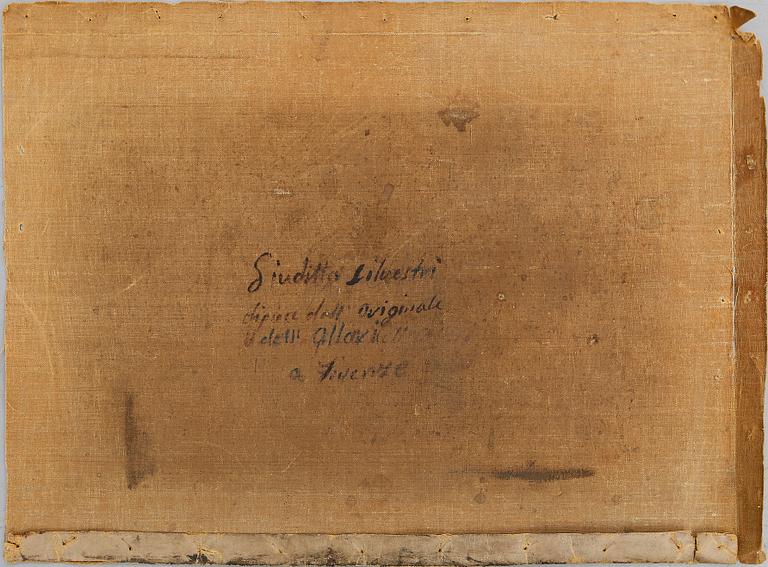 Giuditta Silvestri
dipinse dall' originale
dell' Allori
a Firenze